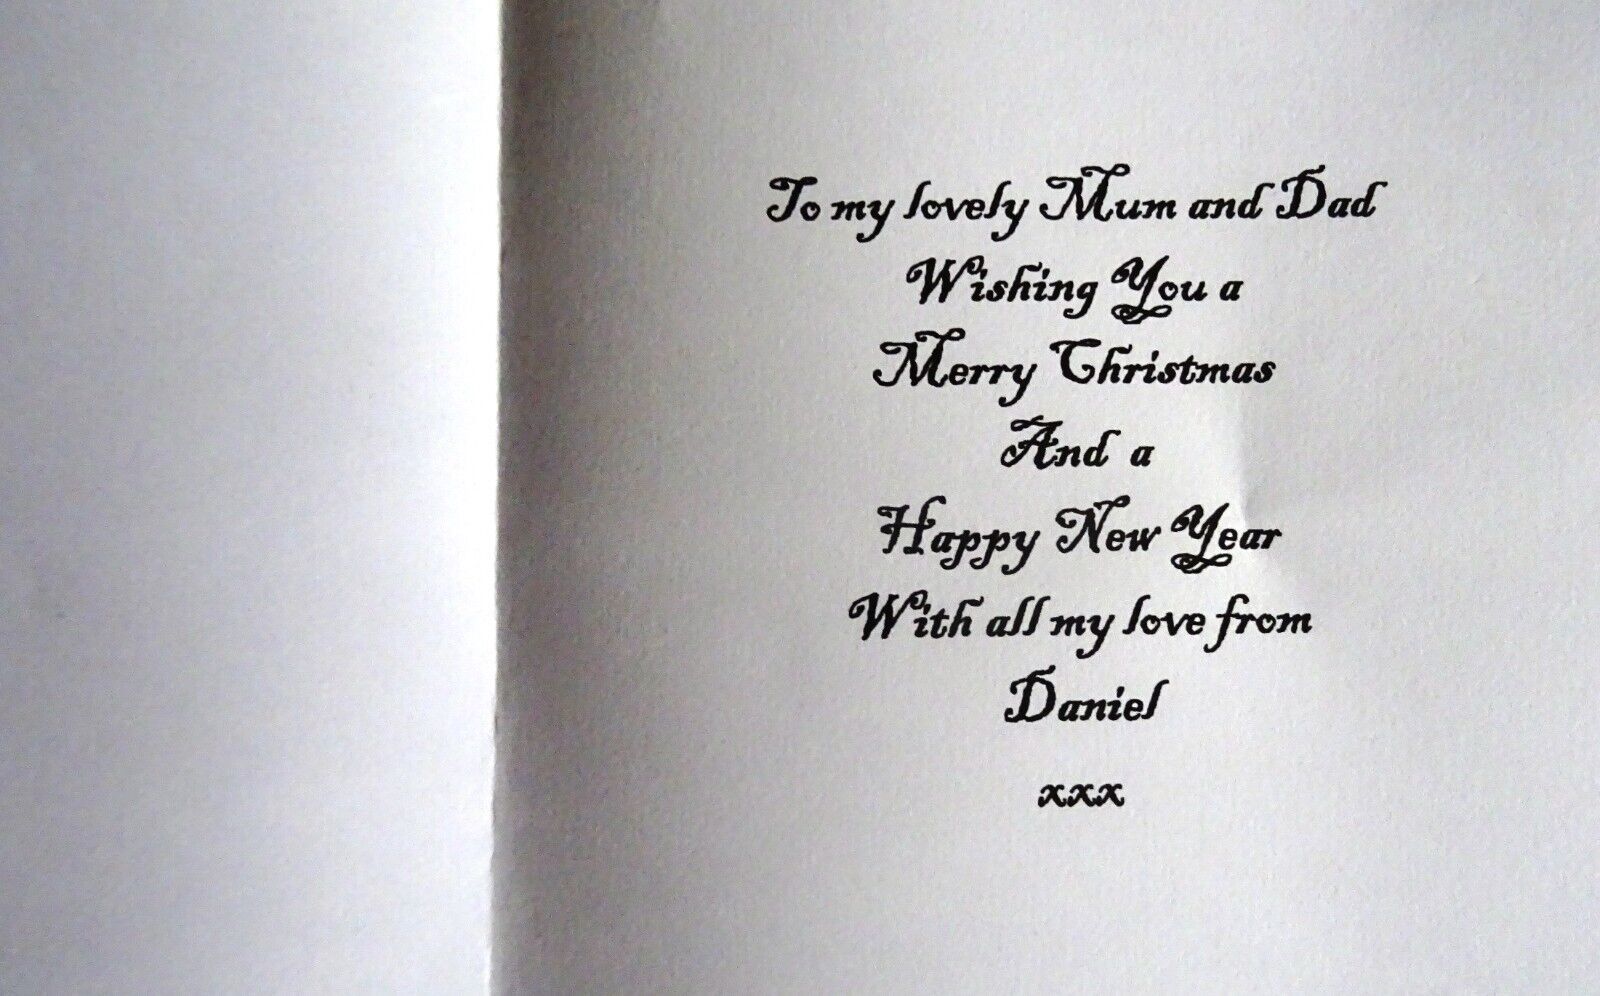 To my lovely Mum and Dad
Wishing You a
Merry Christmas
And a
Happy New Year
With all my love from
Daniel
xxx